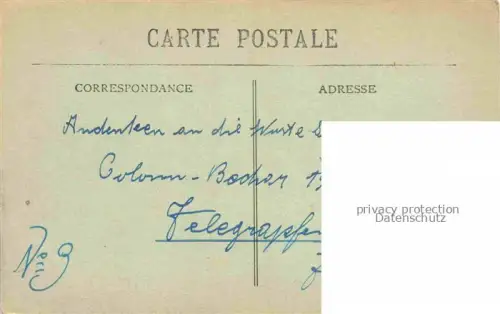 CARTE POSTALE
CORRESPONDANCE
ADRESSE
Andenken an die Wüste
Colomn-Bechar
Telegrapfen
privacy protection
Datenschutz